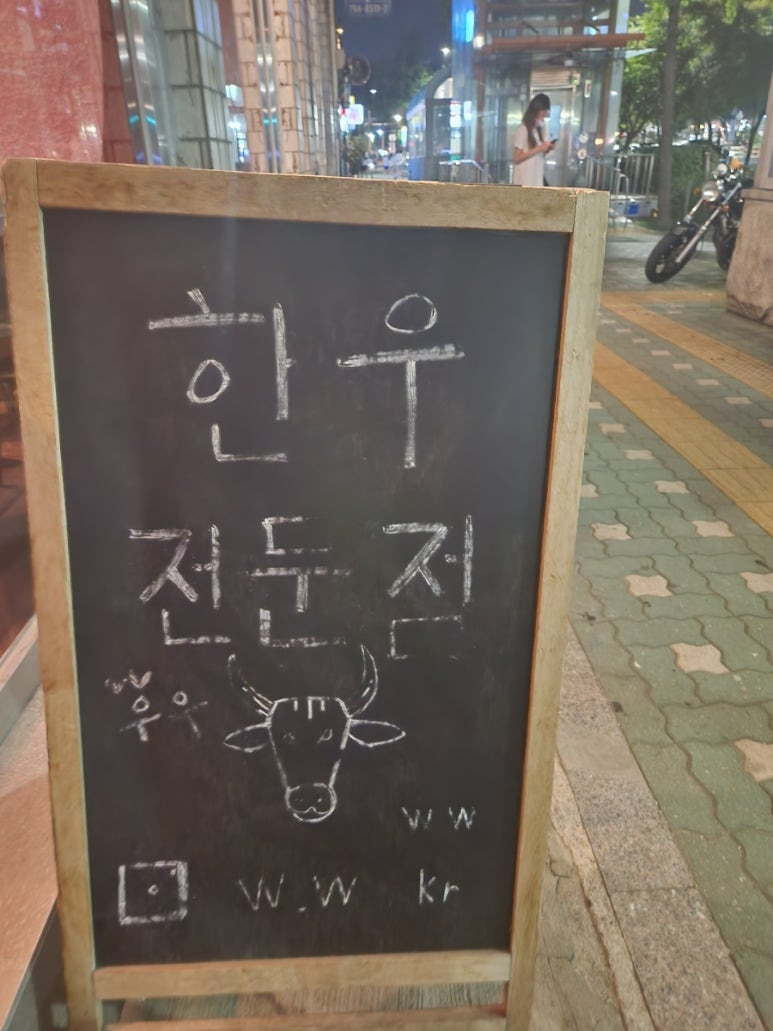 한우
전문점
w
우우
w w
w . w kr